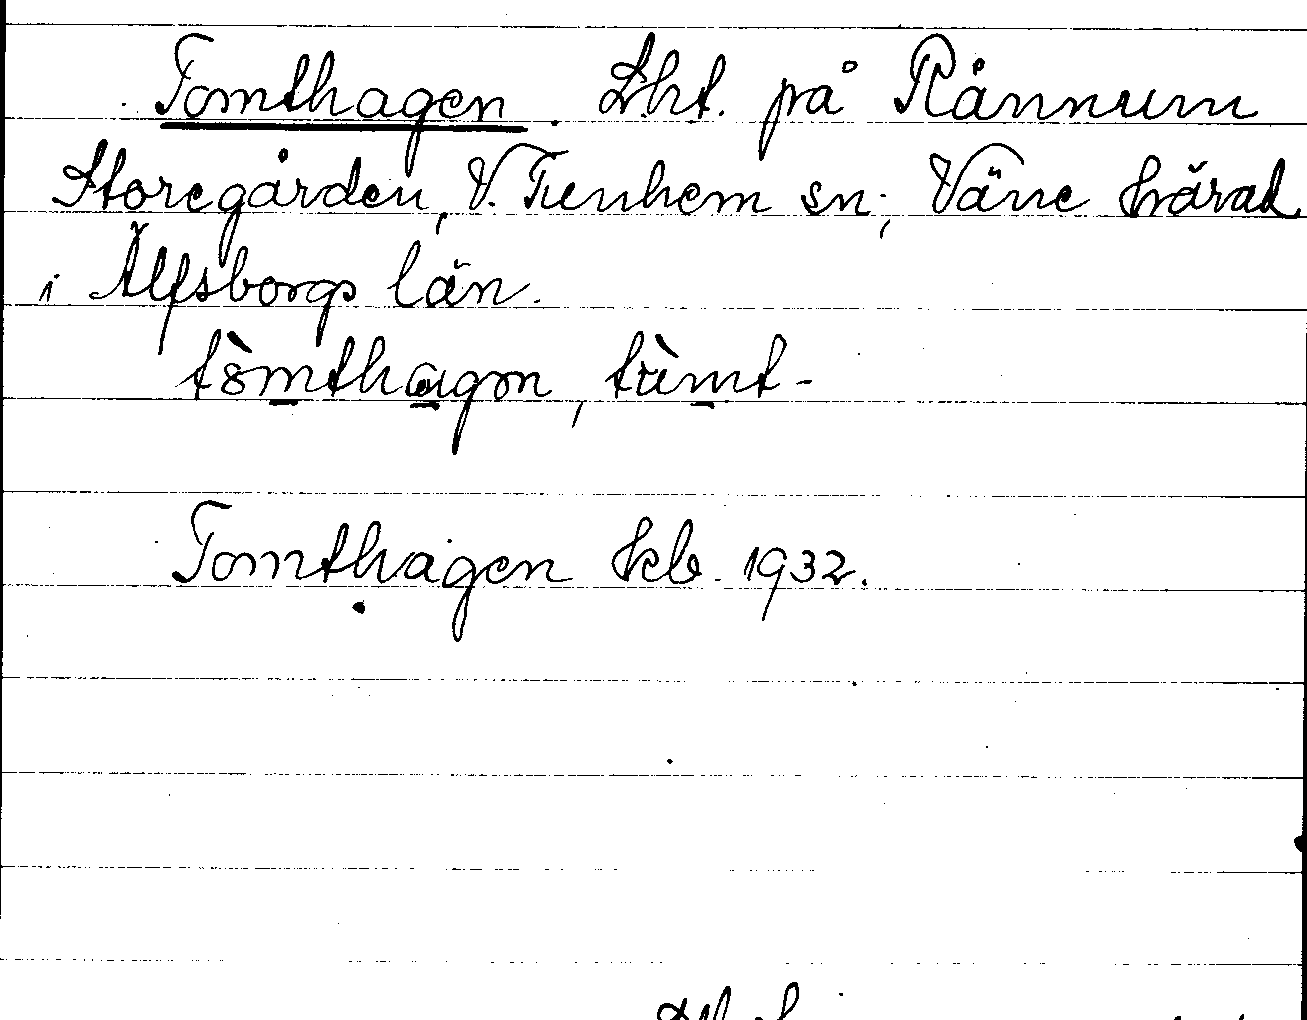 Tomthagen. Lht. på Rånnum
Storegården, V. Tunhem sn; Väne härad
i Älfsborgs län.
tòmthagen, tùmt-
Tomthagen kb 1932.